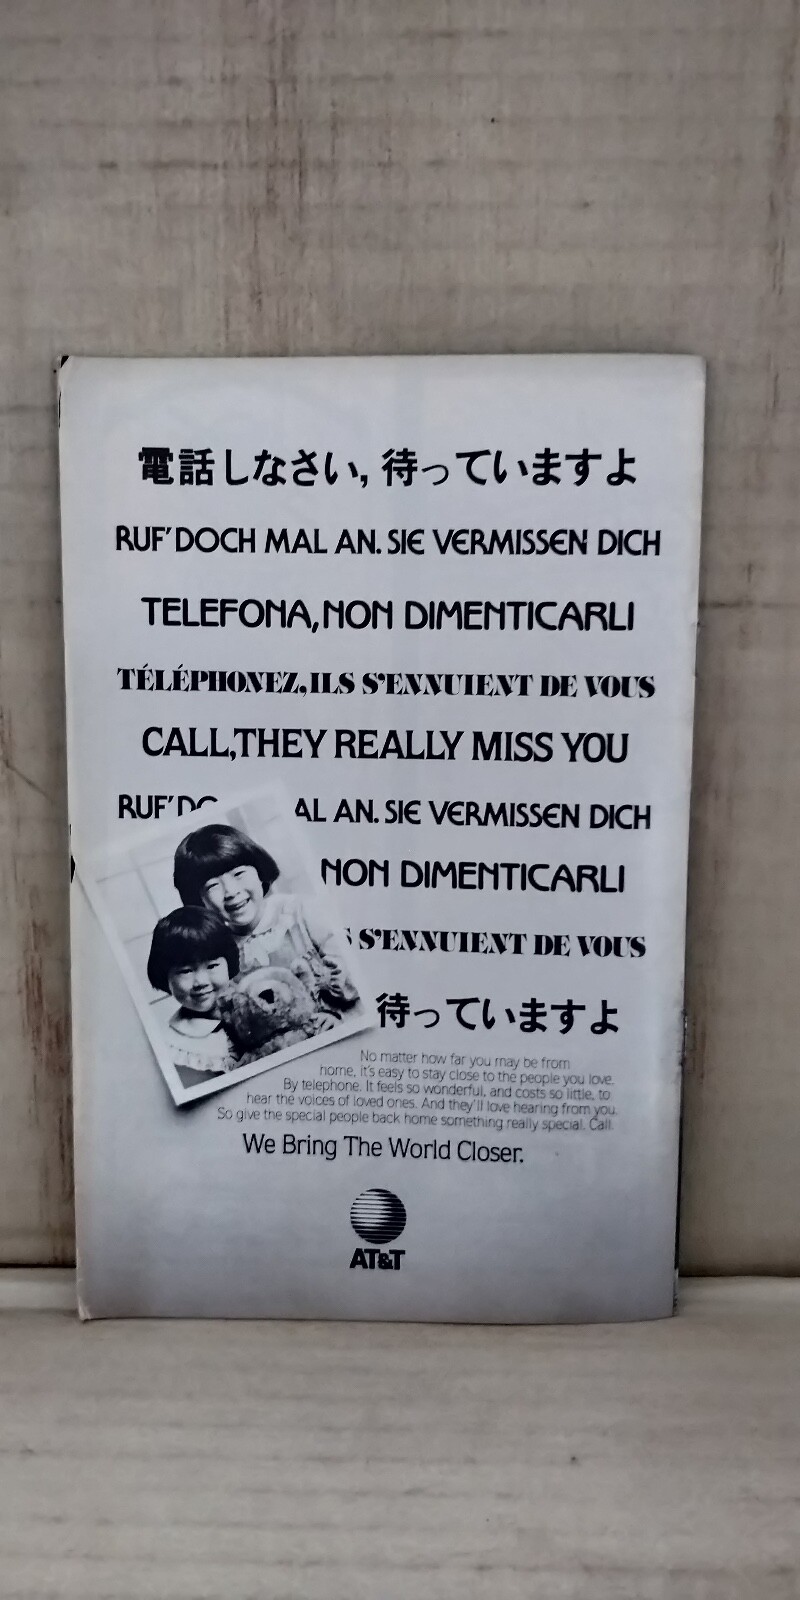 電話しなさい, 待っていますよ
RUF' DOCH MAL AN. SIE VERMISSEN DICH
TELEFONA, NON DIMENTICARLI
TÉLÉPHONEZ, ILS S'ENNUIENT DE VOUS
CALL, THEY REALLY MISS YOU
RUF' DO AL AN. SIE VERMISSEN DICH
NON DIMENTICARLI
S'ENNUIENT DE VOUS
待っていますよ
No matter how far you may be from
home, it's easy to stay close to the people you love.
By telephone. It feels so wonderful, and costs so little, to
hear the voices of loved ones. And they'll love hearing from you.
So give the special people back home something really special. Call.
We Bring The World Closer.
AT&T